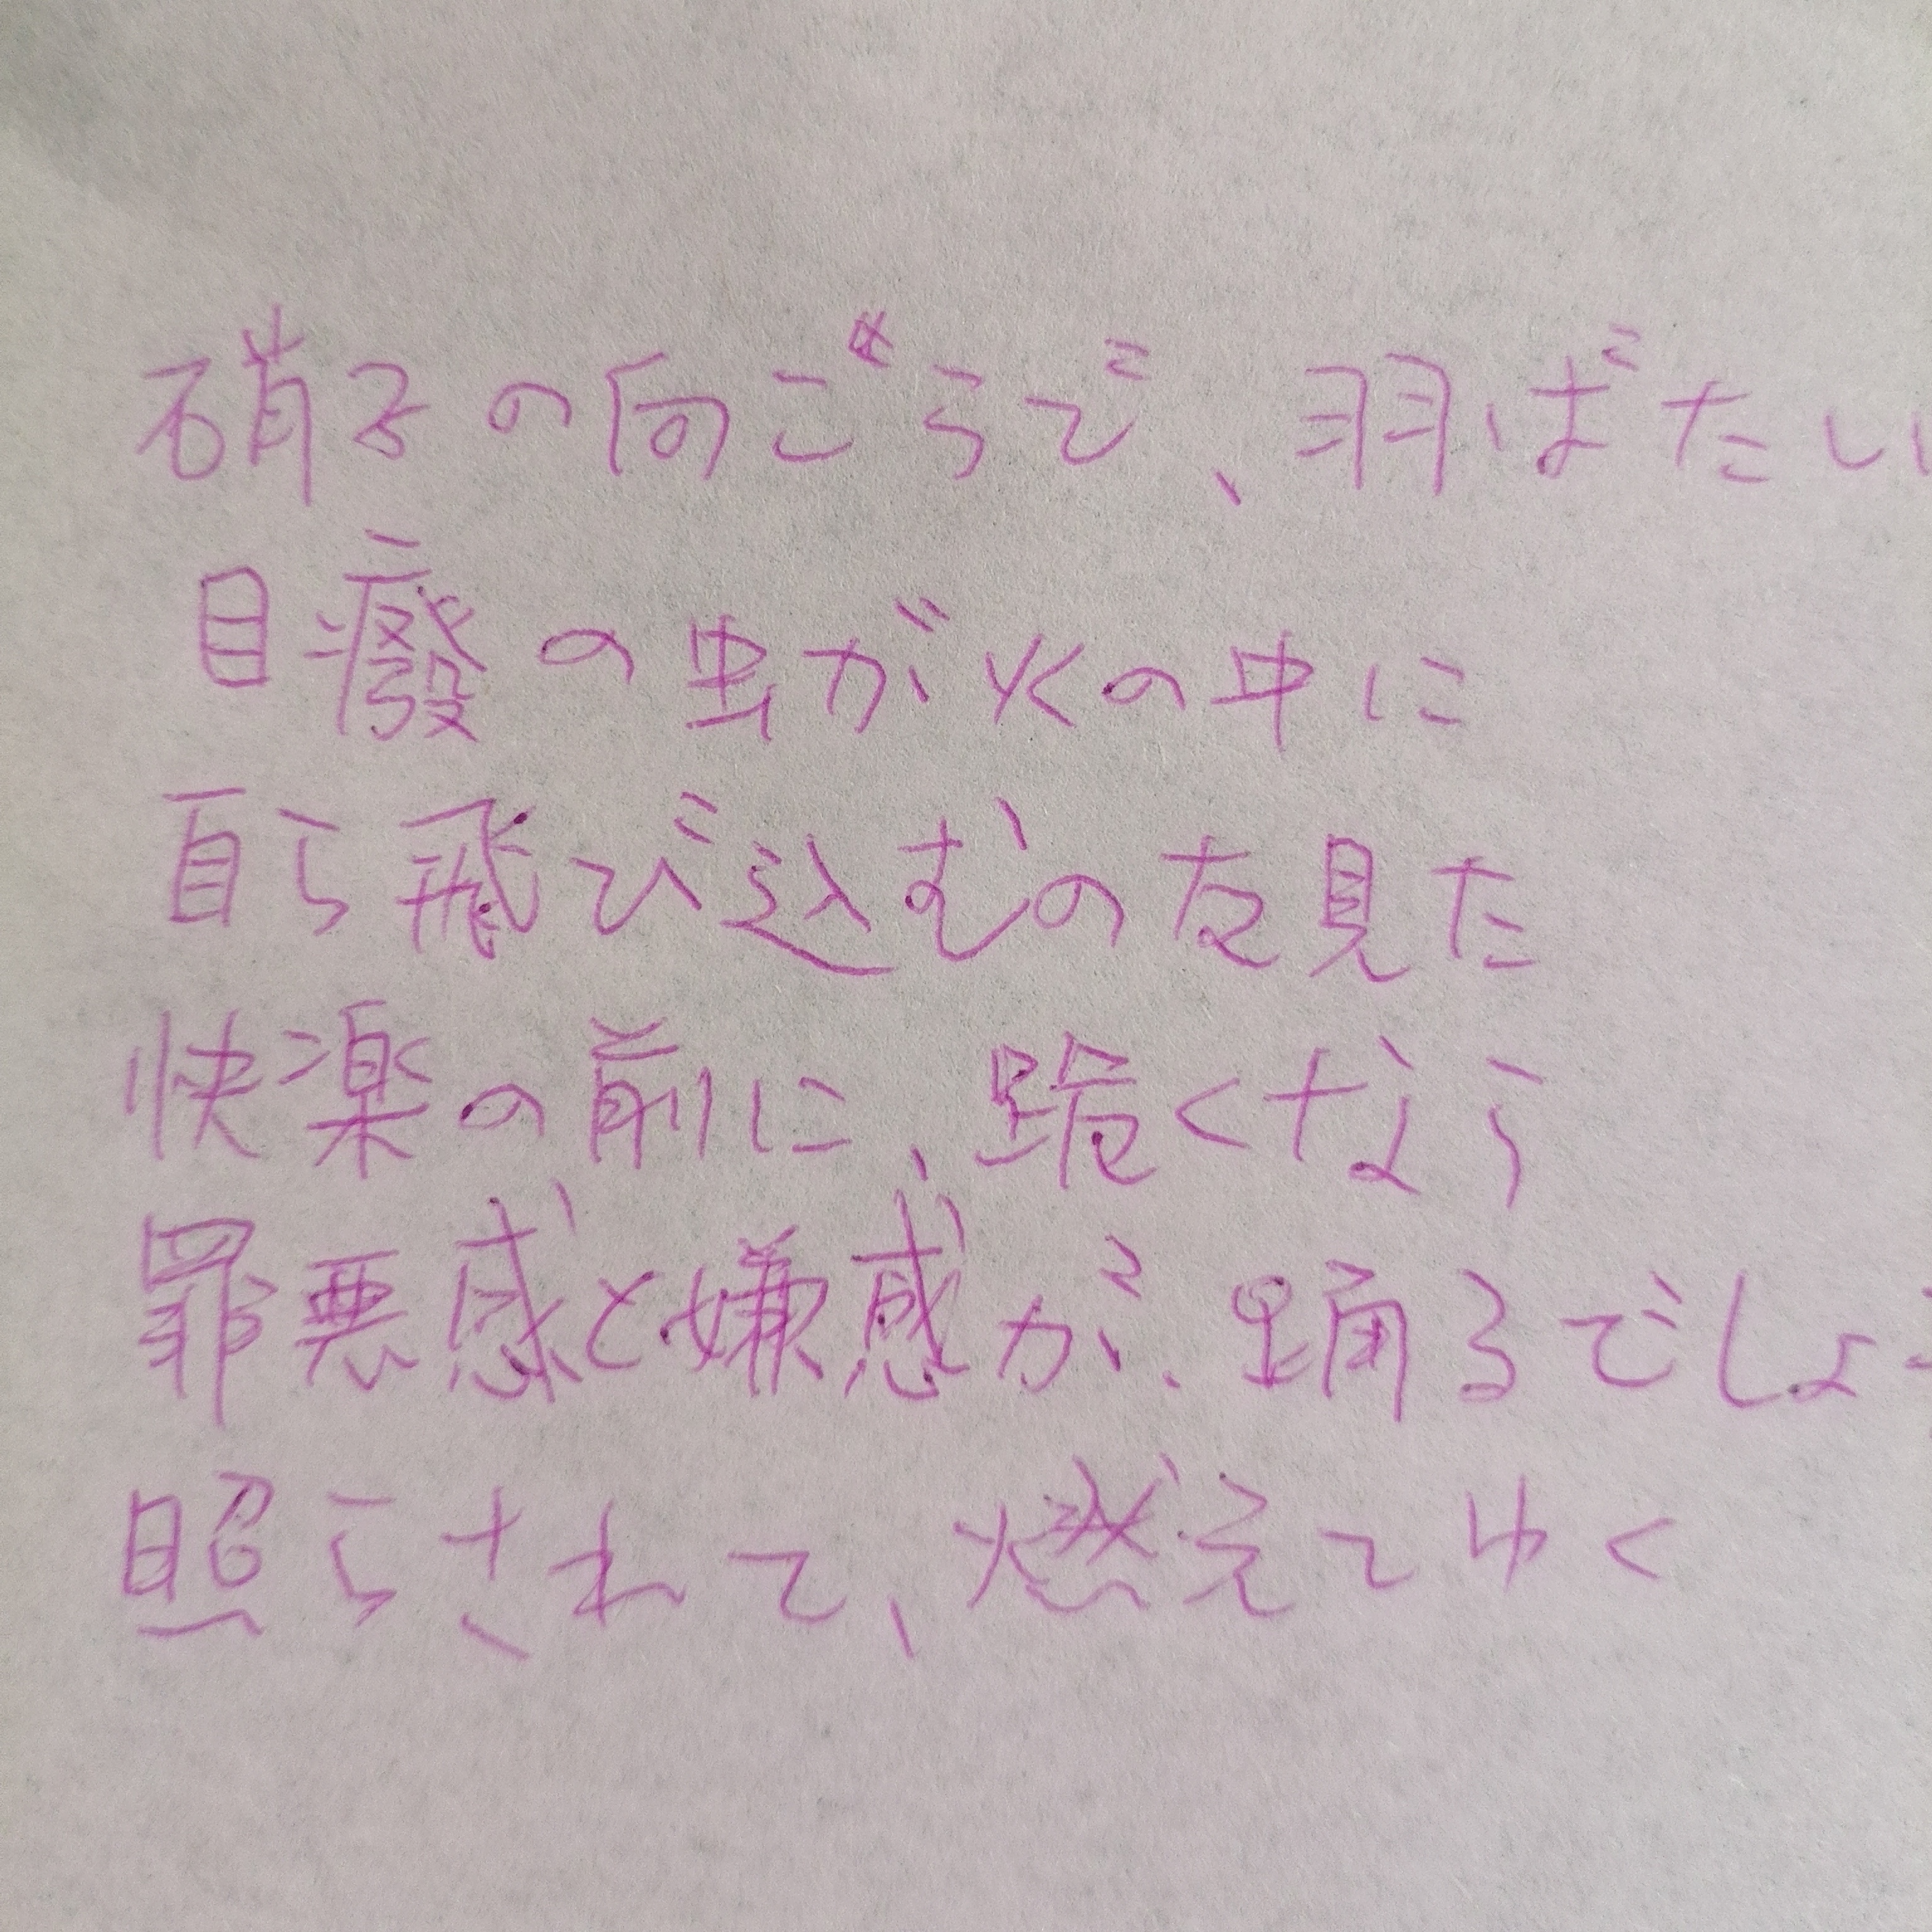 硝子の向こうで、羽ばたい
目癈の虫が火の中に
自ら飛び込むのを見た
快楽の前に、跪くなら
罪悪感と嫌感が、踊るでしょ
照らされて、燃えてゆく